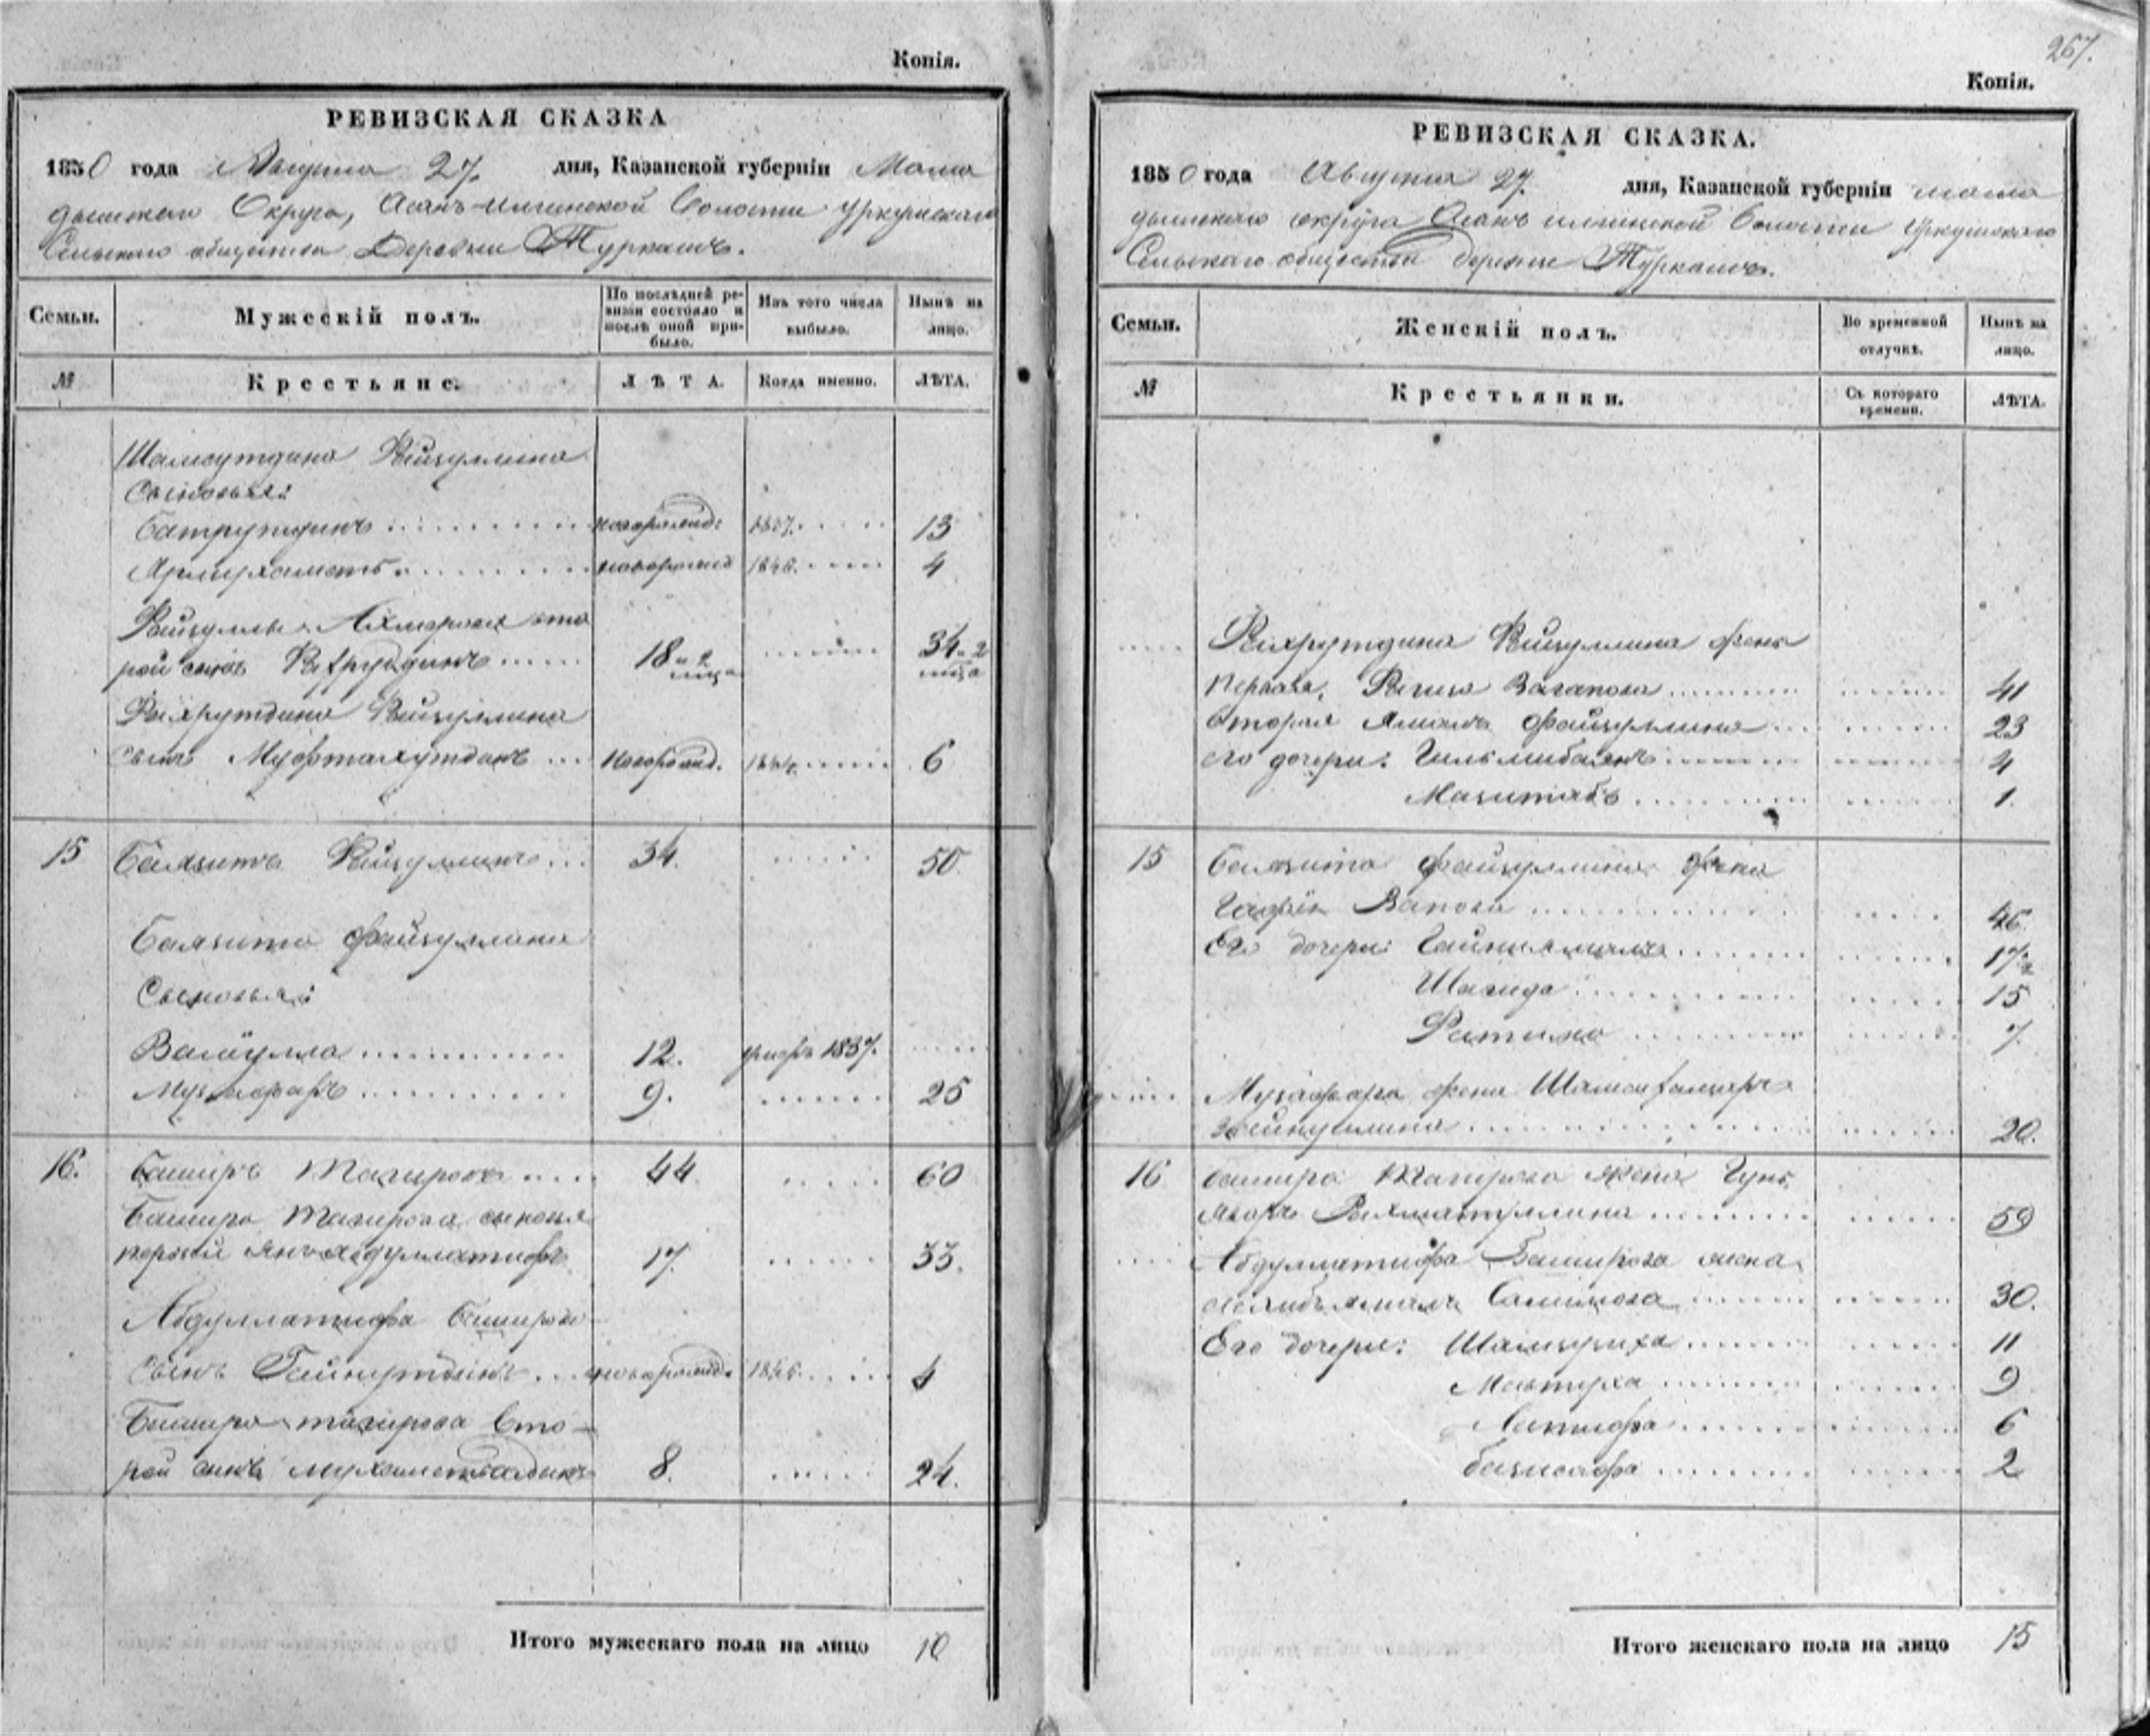 Копія.
РЕВИЗСКАЯ СКАЗКА
1850 года Августа 27. дня, Казанской губерніи Мама
дышскаго Округа, Асанъ-илгинской Волости Уркушскаго
Сельскаго общества Деревни Туркашъ.
Семьи. Мужескій полъ. По послѣдней ревизіи состояло и послѣ оной прибыло. Изъ того числа выбыло. Нынѣ на лицо.
№ Крестьяне. ЛѢТА. Когда именно. ЛѢТА.
Шамсутдина Фейзуллина
Сыновья:
Батрутдинъ новорожд: 1837. 13
Ярмухаметъ новорожд 1846. 4
Фейзуллы Ахмерова вто
рой сынъ 18 и 2 мца 34 и 2 мца
Фахрутдина Фейзуллина
сынъ Муфтахутдинъ новорожд. 1844. 6
15 Баязитъ Фейзуллинъ 34. 50.
Баязита Файзуллина
Сыновья:
Валиулла 12. умеръ 1837.
Музафаръ 9. 25
16. Баширъ Тагировъ 44 60
Башира Тагирова сыновья
первый Абдуллатифъ 17. 33.
Абдуллатифа Баширова
Сынъ Гайнутдинъ новорожд. 1846. 4
Башира Тагирова Вто-
рой сынъ Мухаметсадыкъ 8. 24.
Итого мужескаго пола на лицо 10
267.
Копія.
РЕВИЗСКАЯ СКАЗКА.
1850 года Августа 27. дня, Казанской губерніи мама
дышскаго округа Асанъ илгинской Волости Уркушскаго
Сельскаго общества деревни Туркашъ.
Семьи. Женскій полъ. Во временной отлучкѣ. Нынѣ на лицо.
№ Крестьянки. Съ котораго времени. ЛѢТА.
Фахрутдина Фейзуллина жена
первая, Вагапова 41
вторая Файзуллина 23
его дочери: Гильмибаянъ 4
Магитабъ 1.
15 Баязита Файзуллина жена
Вапова 46.
Его дочери: Гайниямалъ 17.
Шагида 15
Фатима 7.
Музафара жена
Зейнуллина 20.
16 Башира Тагирова жена Гуль
яворъ Рахматуллина 59
Абдуллатифа Баширова жена
Салимова 30.
Его дочери: 11
Мастура 9
Латифа 6
2
Итого женскаго пола на лицо 15